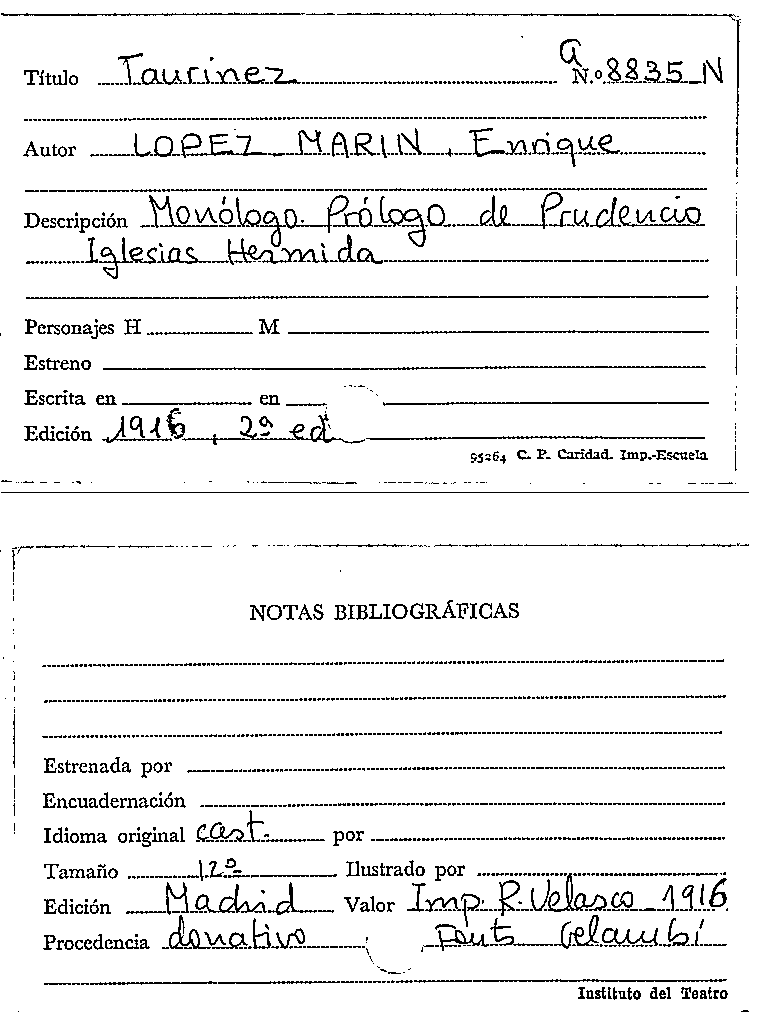 Título Taurinez a N.º 8835 N
Autor LOPEZ MARIN, Enrique
Descripción Monólogo. Prólogo de Prudencio
Iglesias Hermida
Personajes H M
Estreno
Escrita en en
Edición 1916, 2ª ed
95264 C. P. Caridad. Imp.-Escuela
NOTAS BIBLIOGRÁFICAS
Estrenada por
Encuadernación
Idioma original cast. por
Tamaño 12º Ilustrado por
Edición Madrid Valor Imp. R. Velasco 1916
Procedencia donativo Fonts Gelambí
Instituto del Teatro